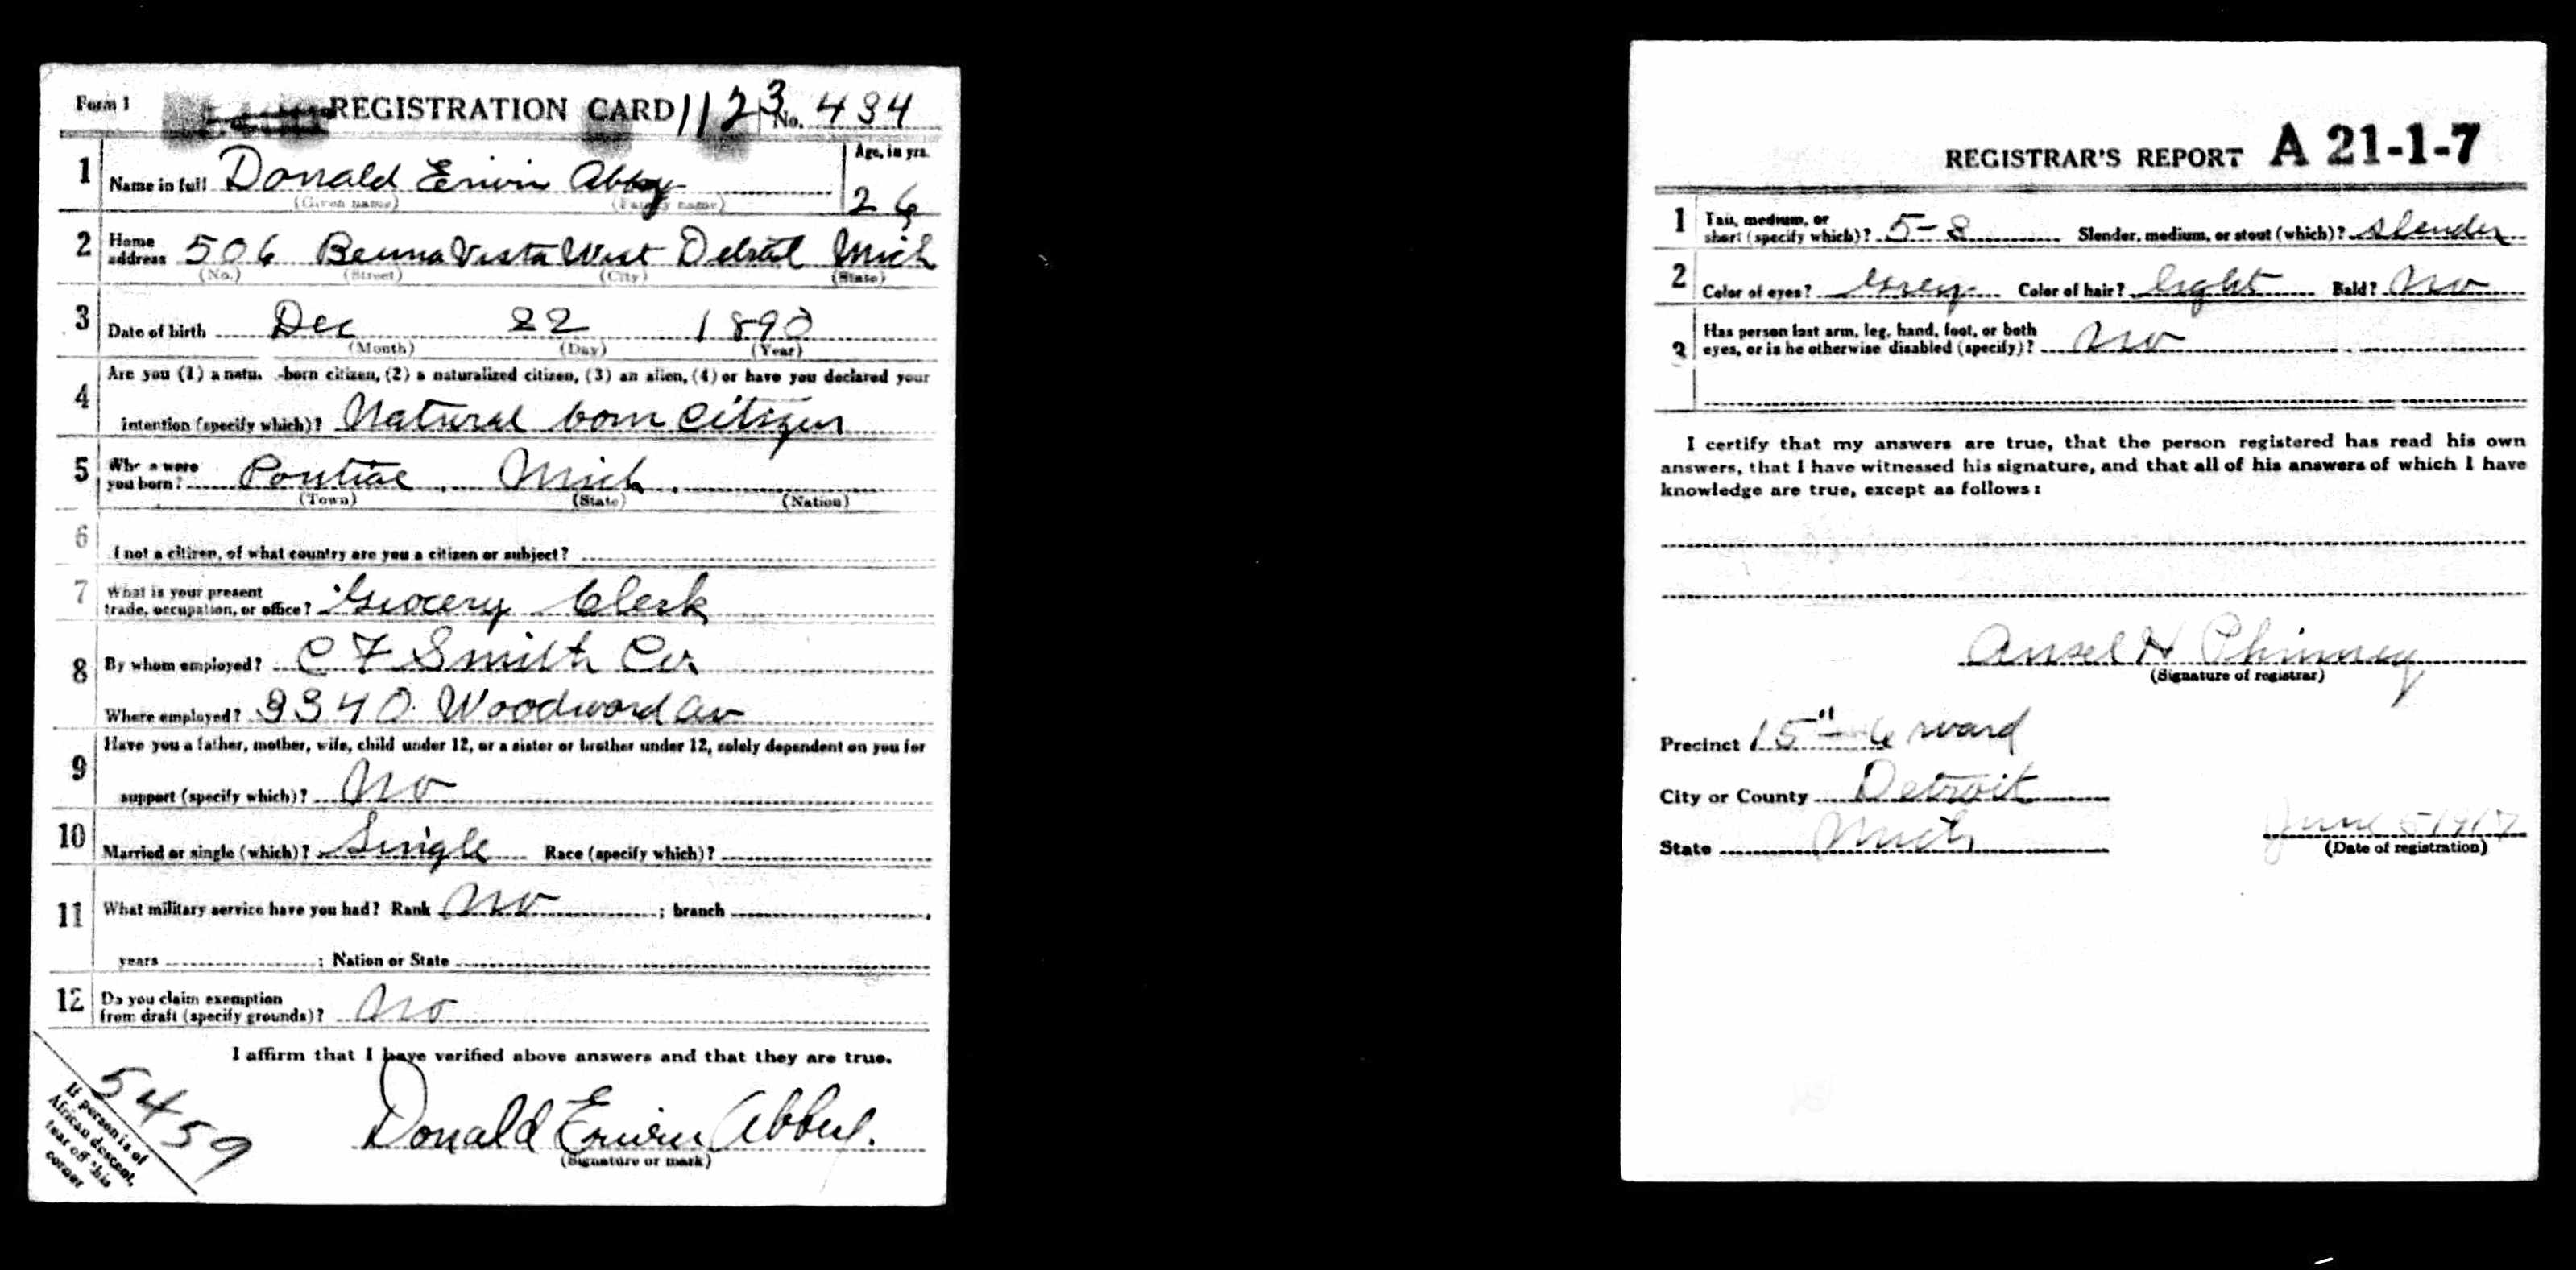 Form 1 REGISTRATION CARD 1123 No. 434
1 Name in full Donald Erwin Abby Age, in yrs. 26
(Given name) (Family name)
2 Home address 506 Beuna Vista West Detroit Mich
(No.) (Street) (City) (State)
3 Date of birth Dec 22 1890
(Month) (Day) (Year)
Are you (1) a natu. -born citizen, (2) a naturalized citizen, (3) an alien, (4) or have you declared your
4 intention (specify which)? Natural born Citizen
5 Where were you born? Pontiac, Mich.
(Town) (State) (Nation)
6 I not a citizen, of what country are you a citizen or subject?
7 What is your present
trade, occupation, or office? Grocery Clerk
8 By whom employed? C F Smith Co
Where employed? 3340 Woodward av
Have you a father, mother, wife, child under 12, or a sister or brother under 12, solely dependent on you for
9 support (specify which)? No
10 Married or single (which)? Single Race (specify which)?
11 What military service have you had? Rank No ; branch
years ; Nation or State
12 Do you claim exemption
from draft (specify grounds)? No
I affirm that I have verified above answers and that they are true.
Donald Erwin Abbey.
(Signature or mark)
5459
If person is of
African descent,
tear off this
corner
REGISTRAR'S REPORT A 21-1-7
1 Tall, medium, or
short (specify which)? 5-8 Slender, medium, or stout (which)? slender
2 Color of eyes? Grey Color of hair? light Bald? No
3 Has person lost arm, leg, hand, foot, or both
eyes, or is he otherwise disabled (specify)? No
I certify that my answers are true, that the person registered has read his own
answers, that I have witnessed his signature, and that all of his answers of which I have
knowledge are true, except as follows:
Ansel H Phinney
(Signature of registrar)
Precinct 15" - 6 ward
City or County Detroit
State Mich June 5 1917
(Date of registration)